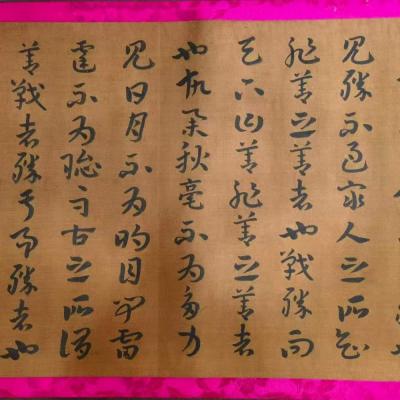 見勝不過眾人之所知
非善之善者也戰勝而
天下曰善非善之善者
也故舉秋毫不為多力
見日月不為明目聞雷
霆不為聰耳古之所謂
善戰者勝于易勝者也